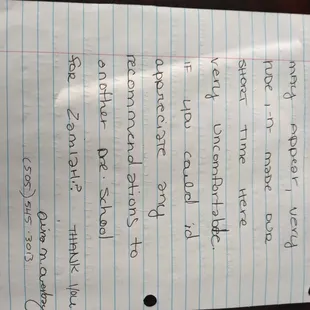 may appear, very
rude, it made our
short time here
very uncomfortable.
If you could id
appreciate any
recommendations to
another pre-school
for Zamiah? Thank you
(505) 545-3013